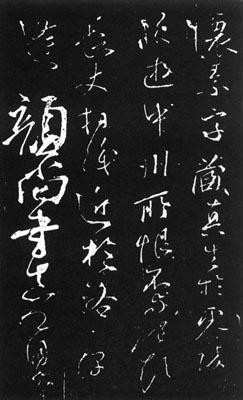 懷素字藏真生於零陵
晚遊中州所恨不與張顛
長史相識近於洛下偶
逢顏尚書真卿自云